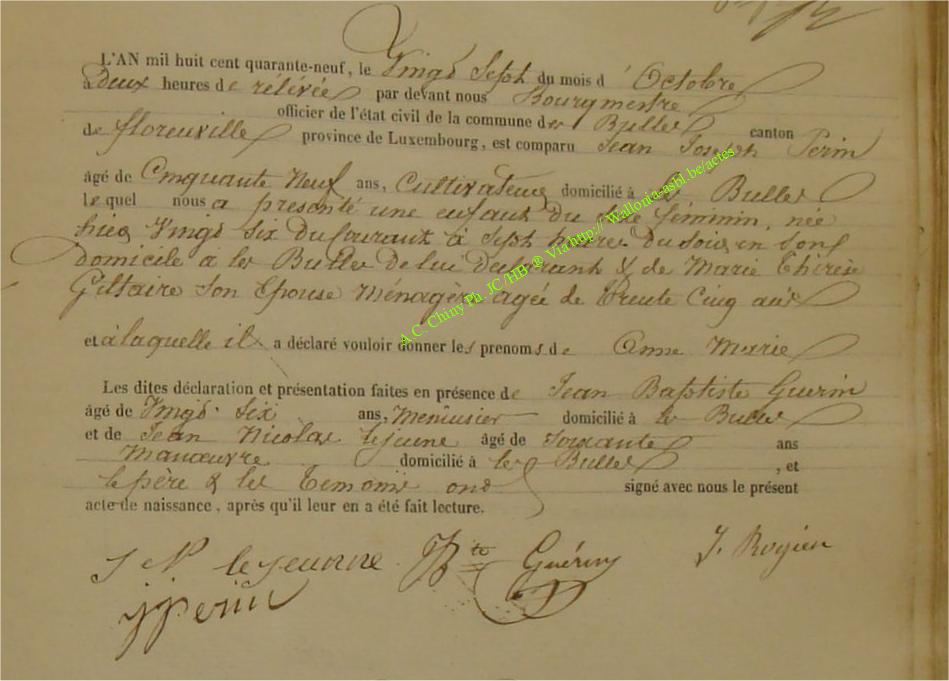 L'AN mil huit cent quarante-neuf, le Vingt Sept du mois d' Octobre
a Deux heures de rélévée par devant nous Bourgmestre
officier de l'état civil de la commune de les Bulles canton
de florenville province de Luxembourg, est comparu Jean Joseph Perin
âgé de Cinquante Neuf ans, Cultivateur domicilié à les Bulles
le quel nous a presenté une enfant du sexe féminin, née
hier Vingt Six du Courant à Sept heures du Soir, en Son
domicile a les Bulles de lui declarant & de Marie Thérèse
Giltaire Son Epouse Ménagère agée de trente Cinq ans
et à laquelle il a déclaré vouloir donner les prenoms de Anne Marie
Les dites déclaration et présentation faites en présence de Jean Baptiste Guerin
âgé de Vingt Six ans, Menuisier domicilié à les Bulles
et de Jean Nicolas Lejeune âgé de Soixante ans
Manœuvre domicilié à les Bulles , et
le père & les temoins ont signé avec nous le présent
acte de naissance, après qu'il leur en a été fait lecture.
J N lejeunne JBte Guérin
jjperin
A.C. Chiny Ph. JC/HB ® Via http://Wallonia-asbl.be/actes